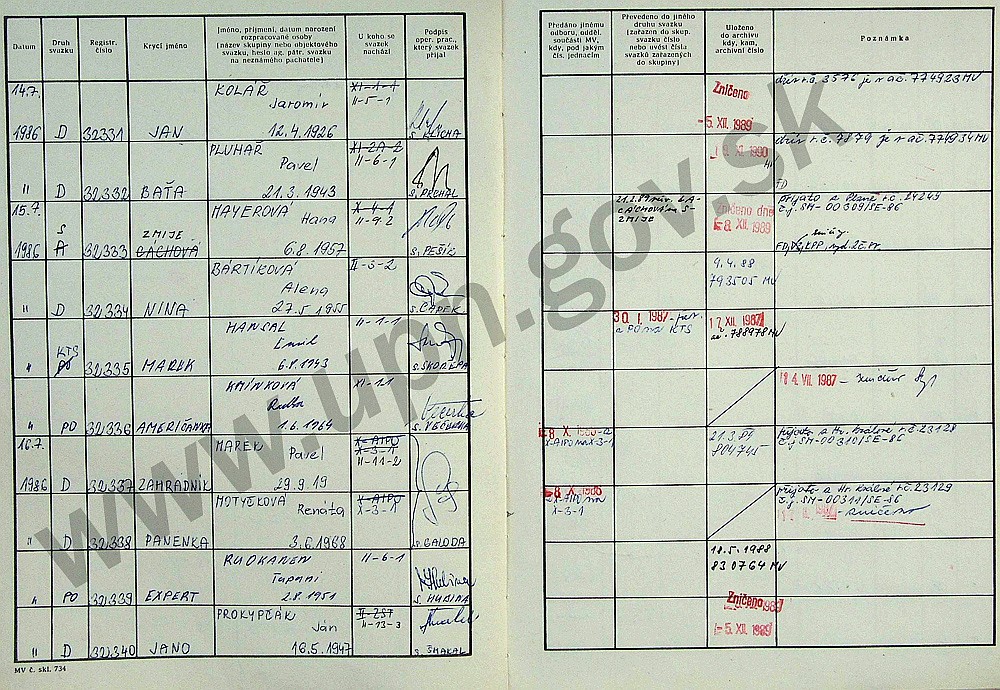 Datum
Druh svazku
Registr. číslo
Krycí jméno
Jméno, příjmení, datum narození
rozpracované osoby
(název skupiny nebo objektového
svazku, heslo ag. pátr. svazku
na neznámého pachatele)
U koho se
svazek
nachází
Podpis
oper. prac.,
který svazek
přijal
Předáno jinému
odboru, odděl.
součásti MV,
kdy, pod jakým
čís. jednacím
Převedeno do jiného
druhu svazku
(zařazen do skup.
svazku číslo
nebo uvést čísla
svazků zařazených
do skupiny)
Uloženo
do archivu
kdy, kam,
archivní číslo
Poznámka
14.7. KOLÁŘ XI-1-1
Jaromír II-5-1
1986 D 32331 JAN 12.4.1926
Zničeno
-5. XII. 1989
3576 je v ač. 774923 MV
PLUHAŘ XI-2A-2
Pavel II-6-1
II D 32332 BAŤA 21.3.1943 s. PECHAL
XI. 1990
7879 je v ač. 774934 MV
15.7. MAYEROVÁ X-4-1
S ZMIJE Hana II-9-2
1986 A 32333 GÁCHOVÁ 6.8.1957 s. PEŠÍK
21.3.89
ZMIJE
Zničeno dne
-8. XI. 1989
přijato z Plzně r.č. 24249
č.j. SM-00309/SE-86
BÁRTÍKOVÁ II-3-2
Alena
II D 32334 NINA 27.5.1955 s. ČAPEK
9.4.88
793505 MV
HANSAL II-1-1
KTS Emil
II PO 32335 MAREK 6.8.1943 s. SKOŘEPA
30. I. 1987
z PO na KTS
17. XII. 1987
ač. 788978 MV
KMÍNKOVÁ XI-1-1
II PO 32336 AMERIČANKA 1.6.1964 s. VEČERKA
14. VII. 1987
16.7. MAREK X-AIPO
Pavel X-3-1
II-11-2
1986 D 32337 ZAHRADNÍK 29.9.19
-8. X. 1986
X-3-1
21.3.89
804745
přijato z Hr. Králové r.č. 23128
č.j. SM-00310/SE-86
MOTYČKOVÁ X-AIPO
Renáta X-3-1
II D 32338 PANENKA 3.6.1968 s. GALODA
-8. X. 1986
X-3-1
přijato z Hr. Králové r.č. 23129
č.j. SM-00311/SE-86
zničeno
RUOKANEN II-6-1
Tapani
II PO 32339 EXPERT 2.8.1951 s. HUBINA
18.5.1988
830764 MV
PROKYPČÁK II-2ST
Ján II-13-3
II D 32340 JANO 16.5.1947 s. ŠMAKAL
Zničeno
-5. XII. 1989
MV č. skl. 734
www.upn.gov.sk